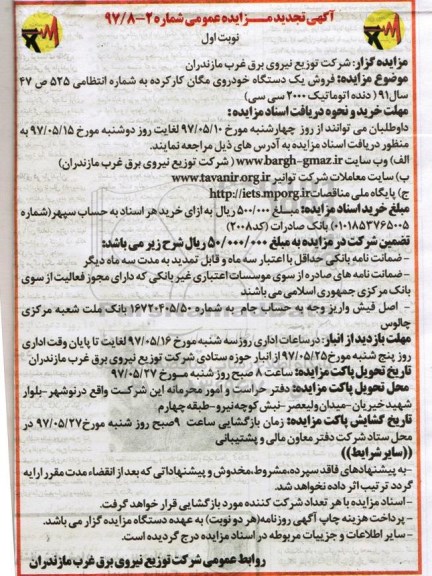 آگهی تجدید مـزایده عمومی شماره ۲-۹۷/۸
نوبت اول
مزایده گزار: شرکت توزیع نیروی برق غرب مازندران
موضوع مزایده: فروش یک دستگاه خودروی مگان کارکرده به شماره انتظامی ۵۲۵ ص ۴۷
سال۹۱ ( دنده اتوماتیک ۲۰۰۰ سی سی)
مهلت خرید و نحوه دریافت اسناد مزایده:
داوطلبان می توانند از روز چهارشنبه مورخ ۹۷/۰۵/۱۰ لغایت روز دوشنبه مورخ ۹۷/۰۵/۱۵ به
منظور دریافت اسناد مزایده به آدرس های ذیل مراجعه نمایند.
الف) وب سایت www.bargh-gmaz.ir ( شرکت توزیع نیروی برق غرب مازندران)
ب) سایت معاملات شرکت توانیر www.tavanir.org.ir
ج) پایگاه ملی مناقصات http://iets.mporg.ir
مبلغ خرید اسناد مزایده: مبسلغ ۵۰۰/۰۰۰ ریال به ازای خرید هر اسناد به حساب سپهر(شماره
۰۱۰۱۸۵۳۷۶۵۰۰۵) بانک صادرات (کد۲۰۰۸)
تضمین شرکت در مزایده به مبلغ ۵۰/۰۰۰/۰۰۰ ریال شرح زیر می باشد:
- ضمانت نامه بانکی حداقل با اعتبار سه ماه و قابل تمدید به مدت سه ماه دیگر
- ضمانت نامه های صادره از سوی موسسات اعتباری غیر بانکی که دارای مجوز فعالیت از سوی
بانک مرکزی جمهوری اسلامی می باشند
- اصل فیش واریز وجه به حساب جام به شماره ۱۶۷۲۰۴۰۵/۵۰ بانک ملت شعبه مرکزی
چالوس
مهلت بازدید از انبار: درساعات اداری روزسه شنبه مورخ ۹۷/۰۵/۱۶ لغایت تا پایان وقت اداری
روز پنج شنبه مورخ۹۷/۰۵/۲۵ از انبار حوزه ستادی شرکت توزیع نیروی برق غرب مازندران
تاریخ تحویل پاکت مزایده: ساعت ۸ صبح روز شنبه مـورخ ۹۷/۰۵/۲۷
محل تحویل پاکت مزایده: دفتر حراست و امور محرمانه این شرکت واقع درنوشهر-بلوار
شهیدخیریان-میدان ولیعصر-نبش کوچه نیرو-طبقه چهارم
تاریخ گشایش پاکت مزایده: زمان بازگشایی ساعت ۹صبح روز شنبه مورخ۹۷/۰۵/۲۷ در
محل ستاد شرکت دفتر معاون مالی و پشتیبانی
((سایر شرایط))
-به پیشنهادهای فاقد سپرده،مشروط،مخدوش و پیشنهاداتی که بعد از انقضاء مدت مقرر ارایه
گردد ترتیب اثر داده نخواهد شد.
-اسناد مزایده با هر تعداد شرکت کننده مورد بازگشایی قرار خواهد گرفت.
- پرداخت هزینه چاپ آگهی روزنامه(هر دو نوبت) به عهده دستگاه مزایده گزار می باشد.
- سایر اطلاعات و جزییات مربوطه در اسناد مزایده درج گردیده است.
روابط عمومی شرکت توزیع نیروی برق غرب مازندران